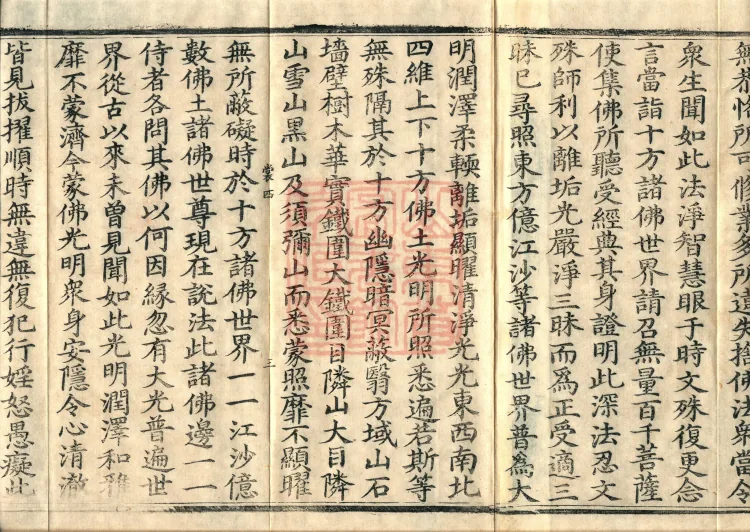 無恭恪所可脩業多所違失捨佛法衆當令
衆生聞如此法淨智慧眼于時文殊復更念
言當詣十方諸佛世界請召無量百千菩薩
使集佛所聽受經典其身證明此深法忍文
殊師利以離垢光嚴淨三昧而爲正受適三
昧已尋照東方億江沙等諸佛世界普爲大
明潤澤柔輭離垢顯曜清淨光光東西南北
四維上下十方佛土光明所照悉遍若斯等
無殊隔其於十方幽隱暗冥蔽翳方域山石
墻壁樹木華實鐵圍大鐵圍目隣山大目隣
山雪山黑山及須彌山而悉蒙照靡不顯曜
裳四 三
無所蔽礙時於十方諸佛世界一一江沙億
數佛土諸佛世尊現在說法此諸佛邊一一
侍者各問其佛以何因緣忽有大光普遍世
界從古以來未曾見聞如此光明潤澤和雅
靡不蒙濟今蒙佛光明衆身安隱令心清澈
皆見拔擢順時無違無復犯行婬怒愚癡此